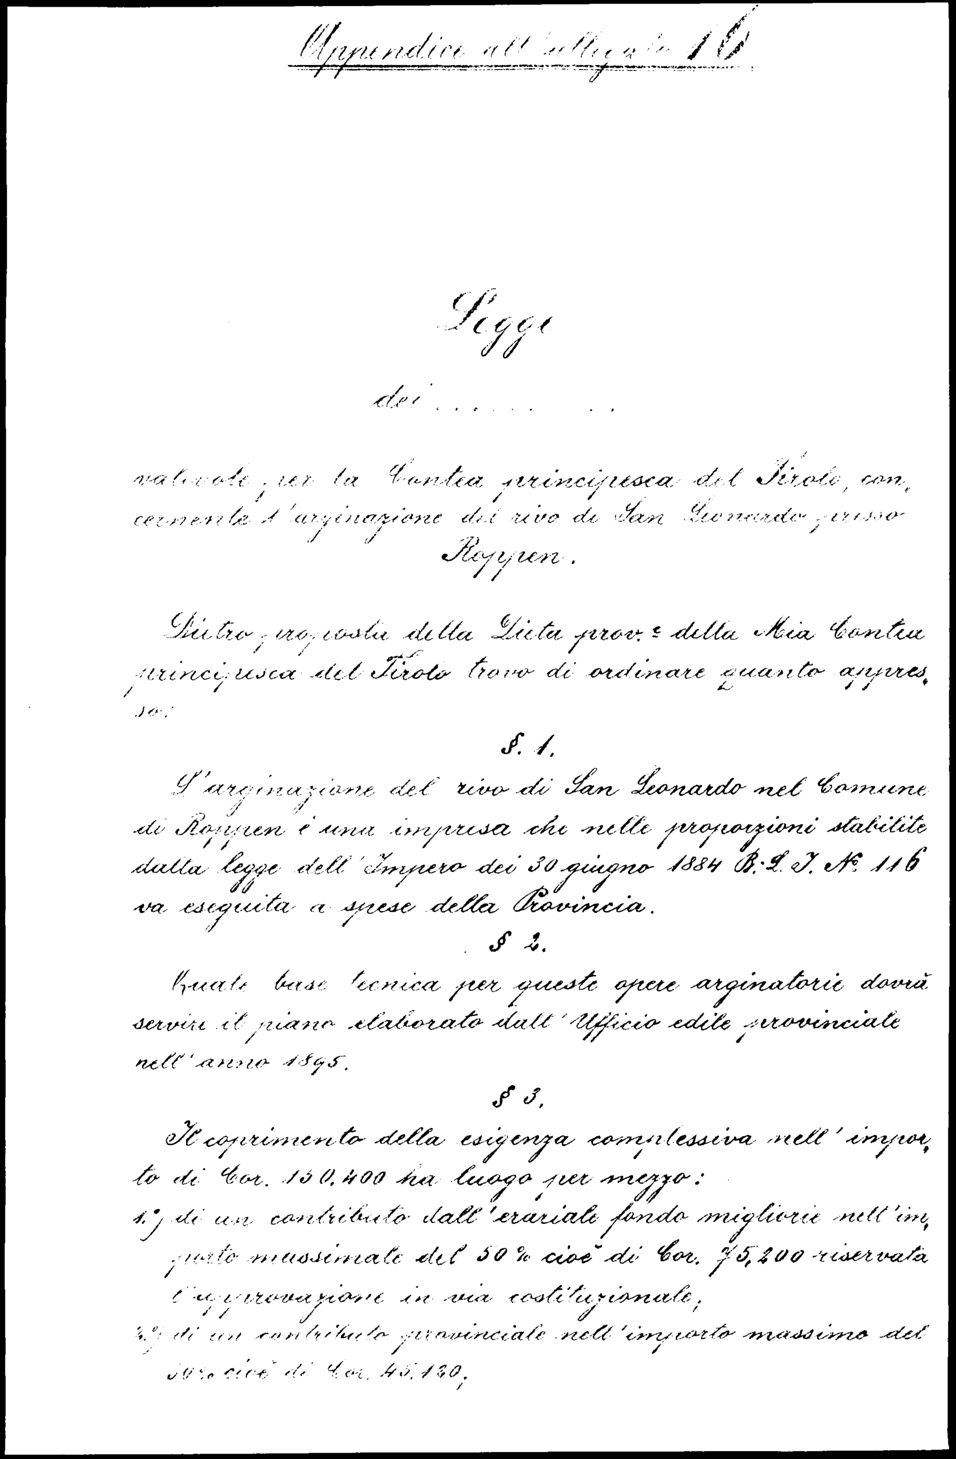 Appendice all'allegato 16
Legge
dei . . . . . . . .
valevole per la Contea principesca del Tirolo, con„
cernente l'arginazione del rivo di San Leonardo presso
Roppen.
Dietro proposta della Dieta prov.e della Mia Contea
principesca del Tirolo trovo di ordinare quanto appres„
so:
§. 1.
L'arginazione del rivo di San Leonardo nel Comune
di Roppen è una impresa che nelle proporzioni stabilite
dalla legge dell'Impero dei 30 giugno 1884 B. L. I. No. 116
va eseguita a spese della Provincia.
§ 2.
Quale base tecnica per queste opere arginatorie dovrà
servire il piano elaborato dall'Ufficio edile provinciale
nell'anno 1895.
§ 3.
Il coprimento della esigenza complessiva nell'impor„
to di Cor. 150.400 ha luogo per mezzo:
1.o) di un contributo dall'erariale fondo migliorie nell'im„
porto massimale del 50% cioè di Cor. 75,200 riservata
l'approvazione in via costituzionale;
2.o) di un contributo provinciale nell'importo massimo del
30% cioè di Cor. 45.120;